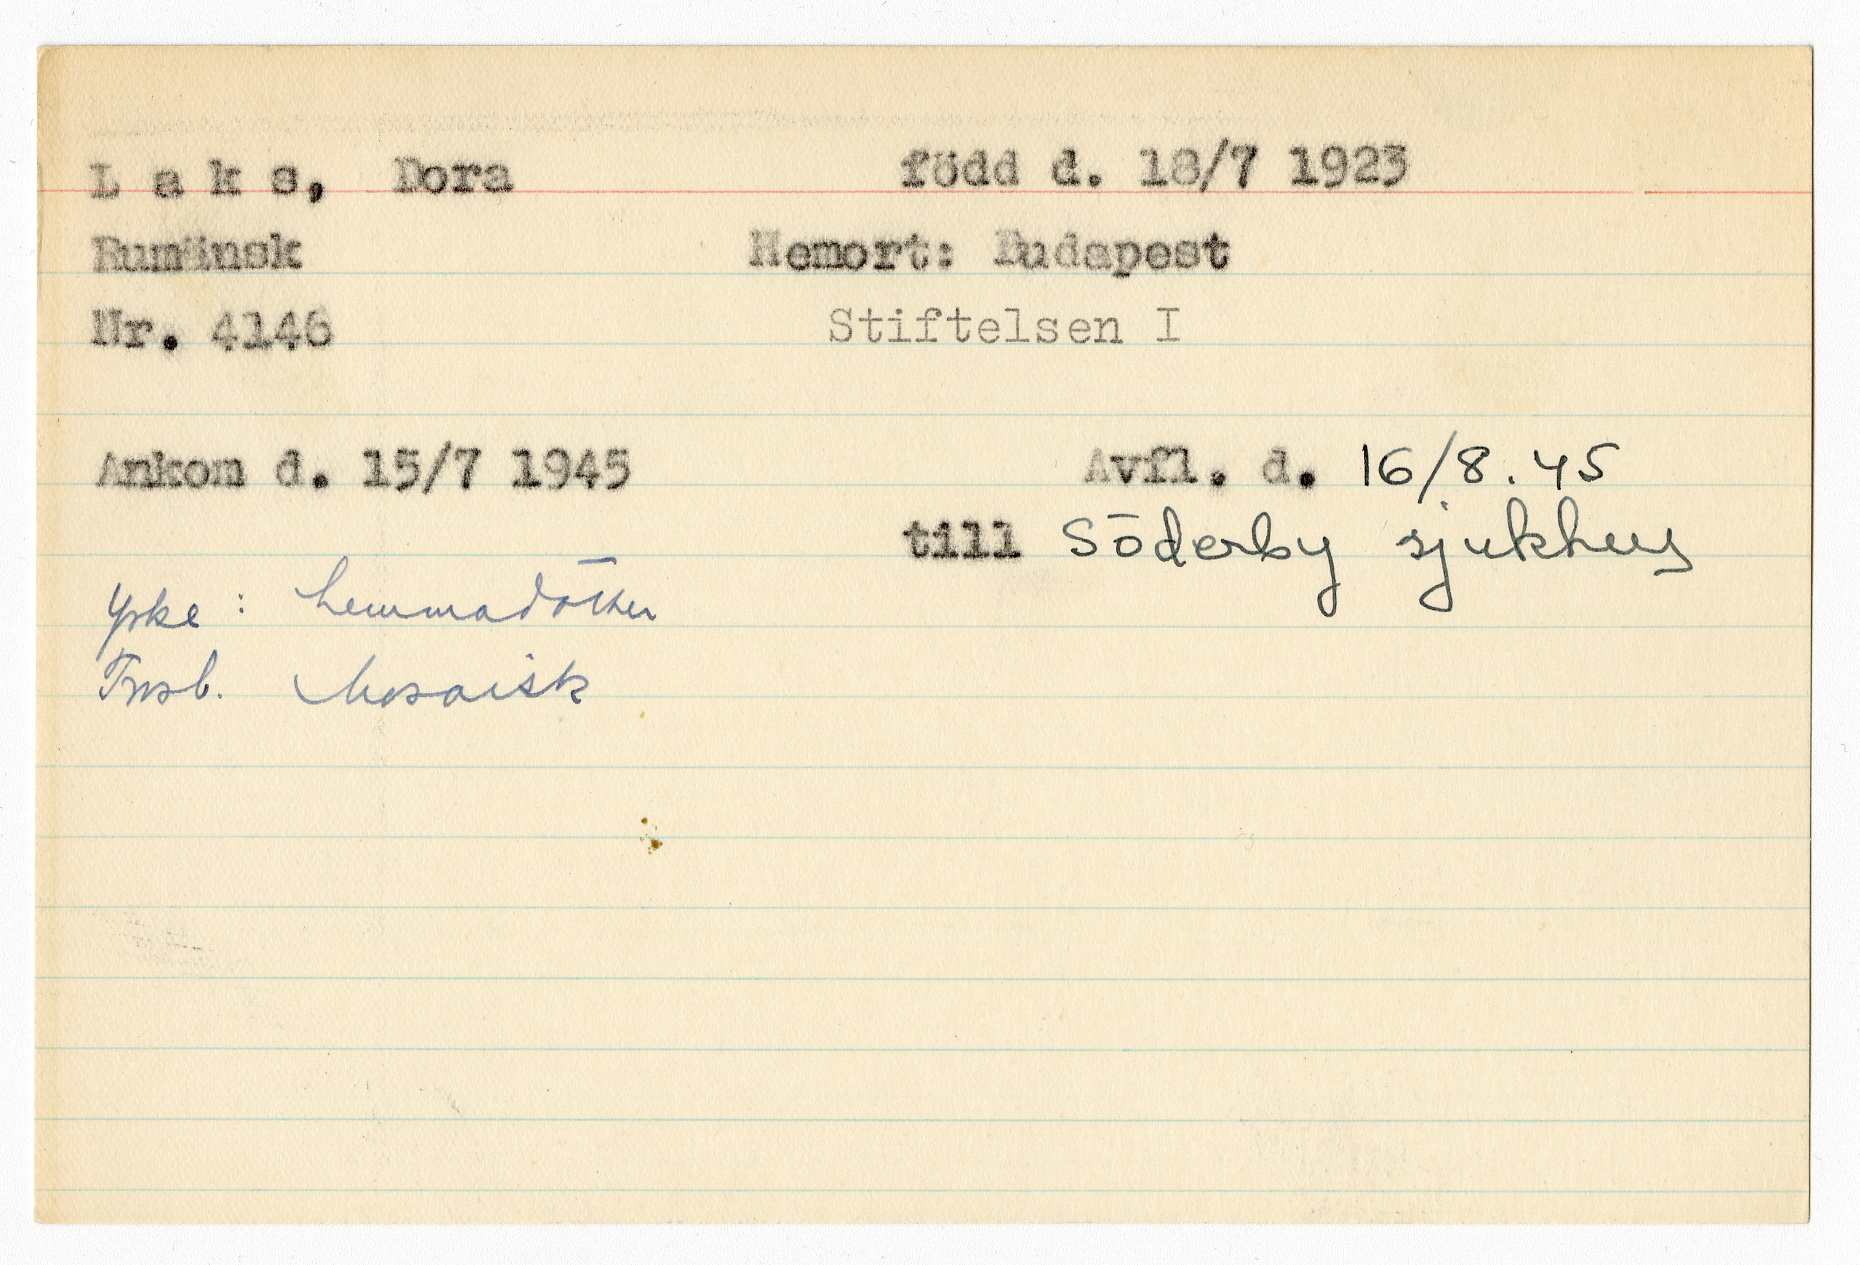 L a k s, Dora född d. 18/7 1923
Rumänsk Hemort: Budapest
Nr. 4146 Stiftelsen I
Ankom d. 15/7 1945 Avfl. d. 16/8.45
till Söderby sjukhus
Yrke : hemmadotter
Trosb. Mosaisk